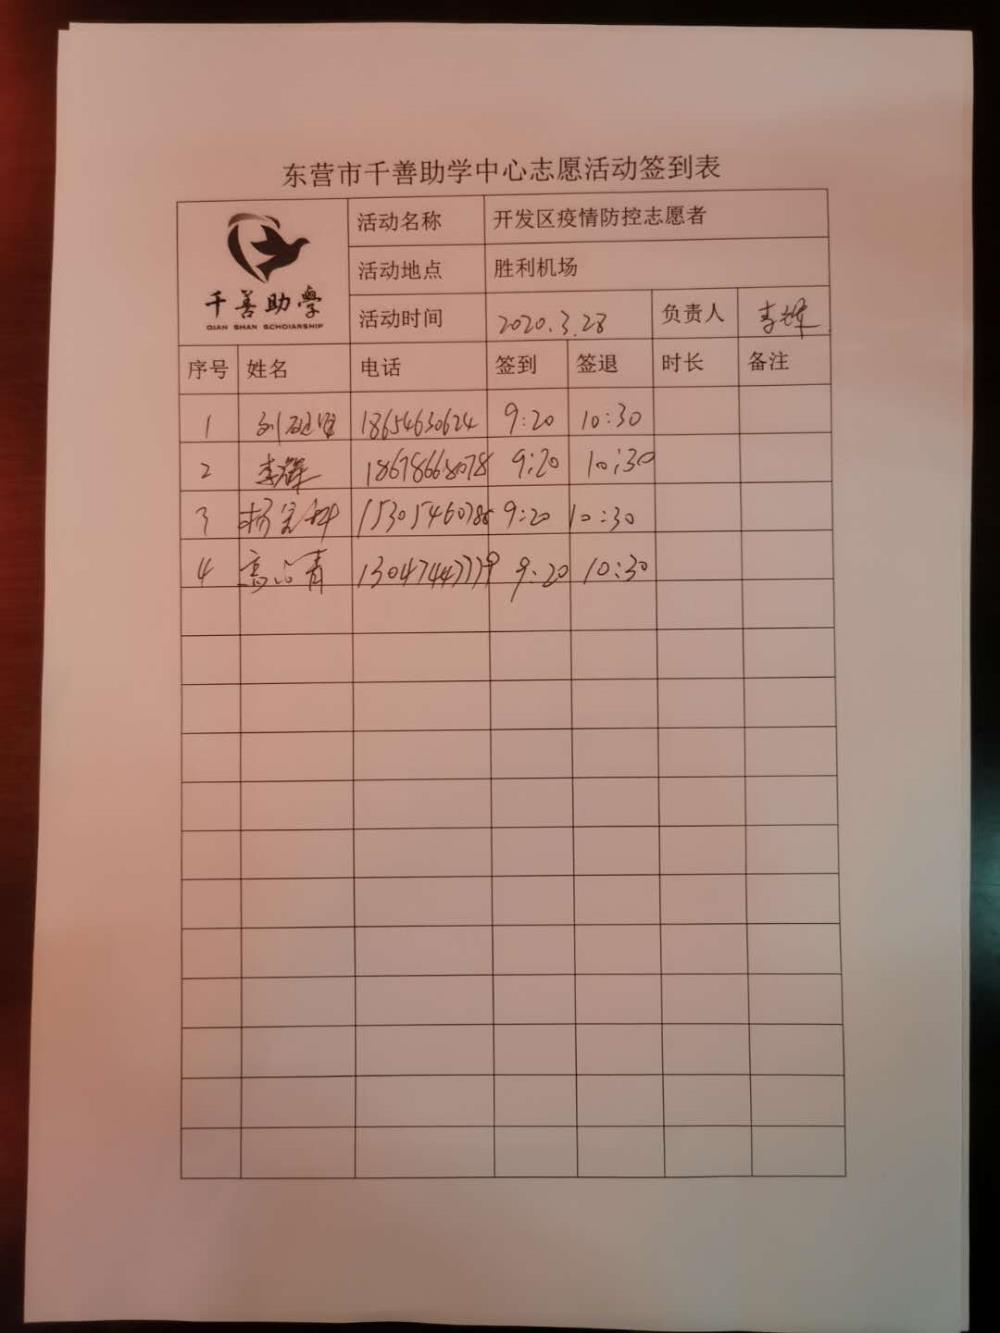 东营市千善助学中心志愿活动签到表
千善助學
QIAN SHAN SCHOIARSHIP
活动名称 开发区疫情防控志愿者
活动地点 胜利机场
活动时间 2020.3.28 负责人 李辉
序号 姓名 电话 签到 签退 时长 备注
1 刘 18654630624 9:20 10:30
2 李辉 18678668078 9:20 10:30
3 杨 9:20 10:30
4 高 13047447779 9:20 10:30